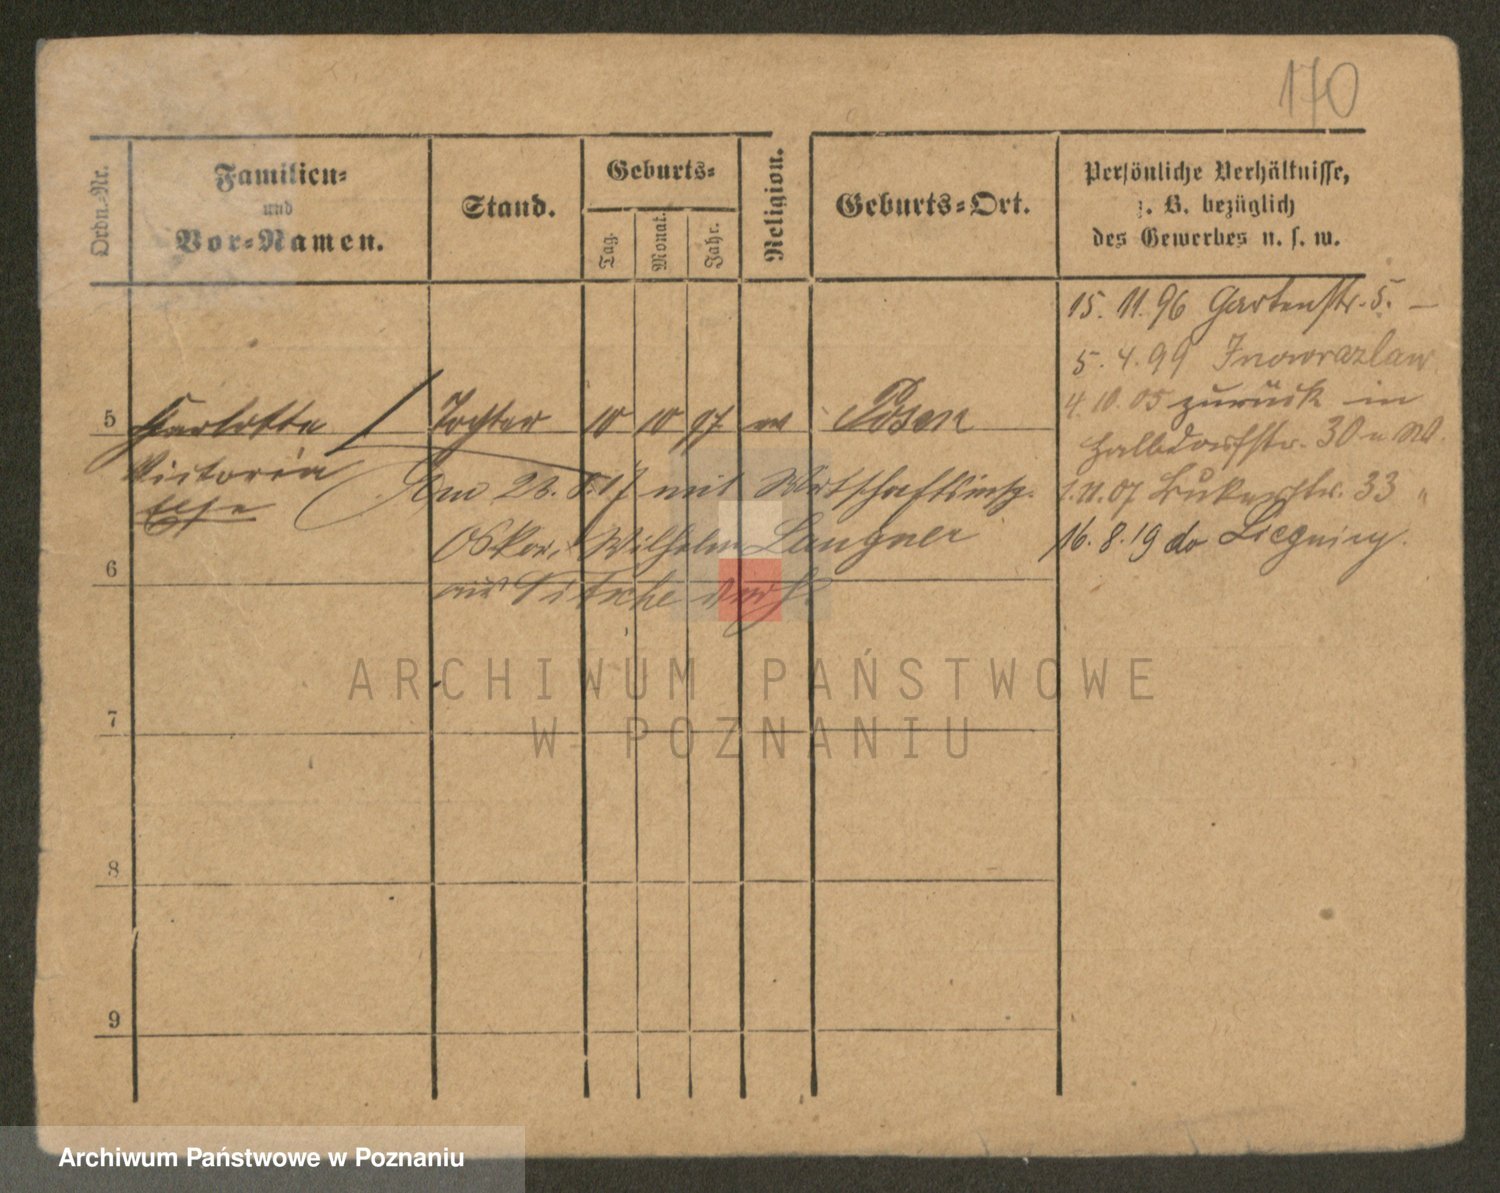 170
Ordn.-Nr.
Familien-
und
Vor-Namen.
Stand.
Geburts-
Tag.
Monat.
Jahr.
Religion.
Geburts-Ort.
Persönliche Verhältnisse,
z. B. bezüglich
des Gewerbes u. s. w.
15. 11. 96 Gartenstr. 5. —
5. 4. 99 Inowrazlaw
4. 10. 05 zurück in
Halbdorfstr. 30
1. 11. 07 Bukerstr. 33 "
16. 8. 19 do
5 Charlotte Tochter 10 10 97 Posen
Victoria
Else
Am 23. 17 mit Wirtschaftsinsp.
Oskar, Wilhelm Langner
aus
6
7
8
9
ARCHIWUM PAŃSTWOWE
W POZNANIU
Archiwum Państwowe w Poznaniu